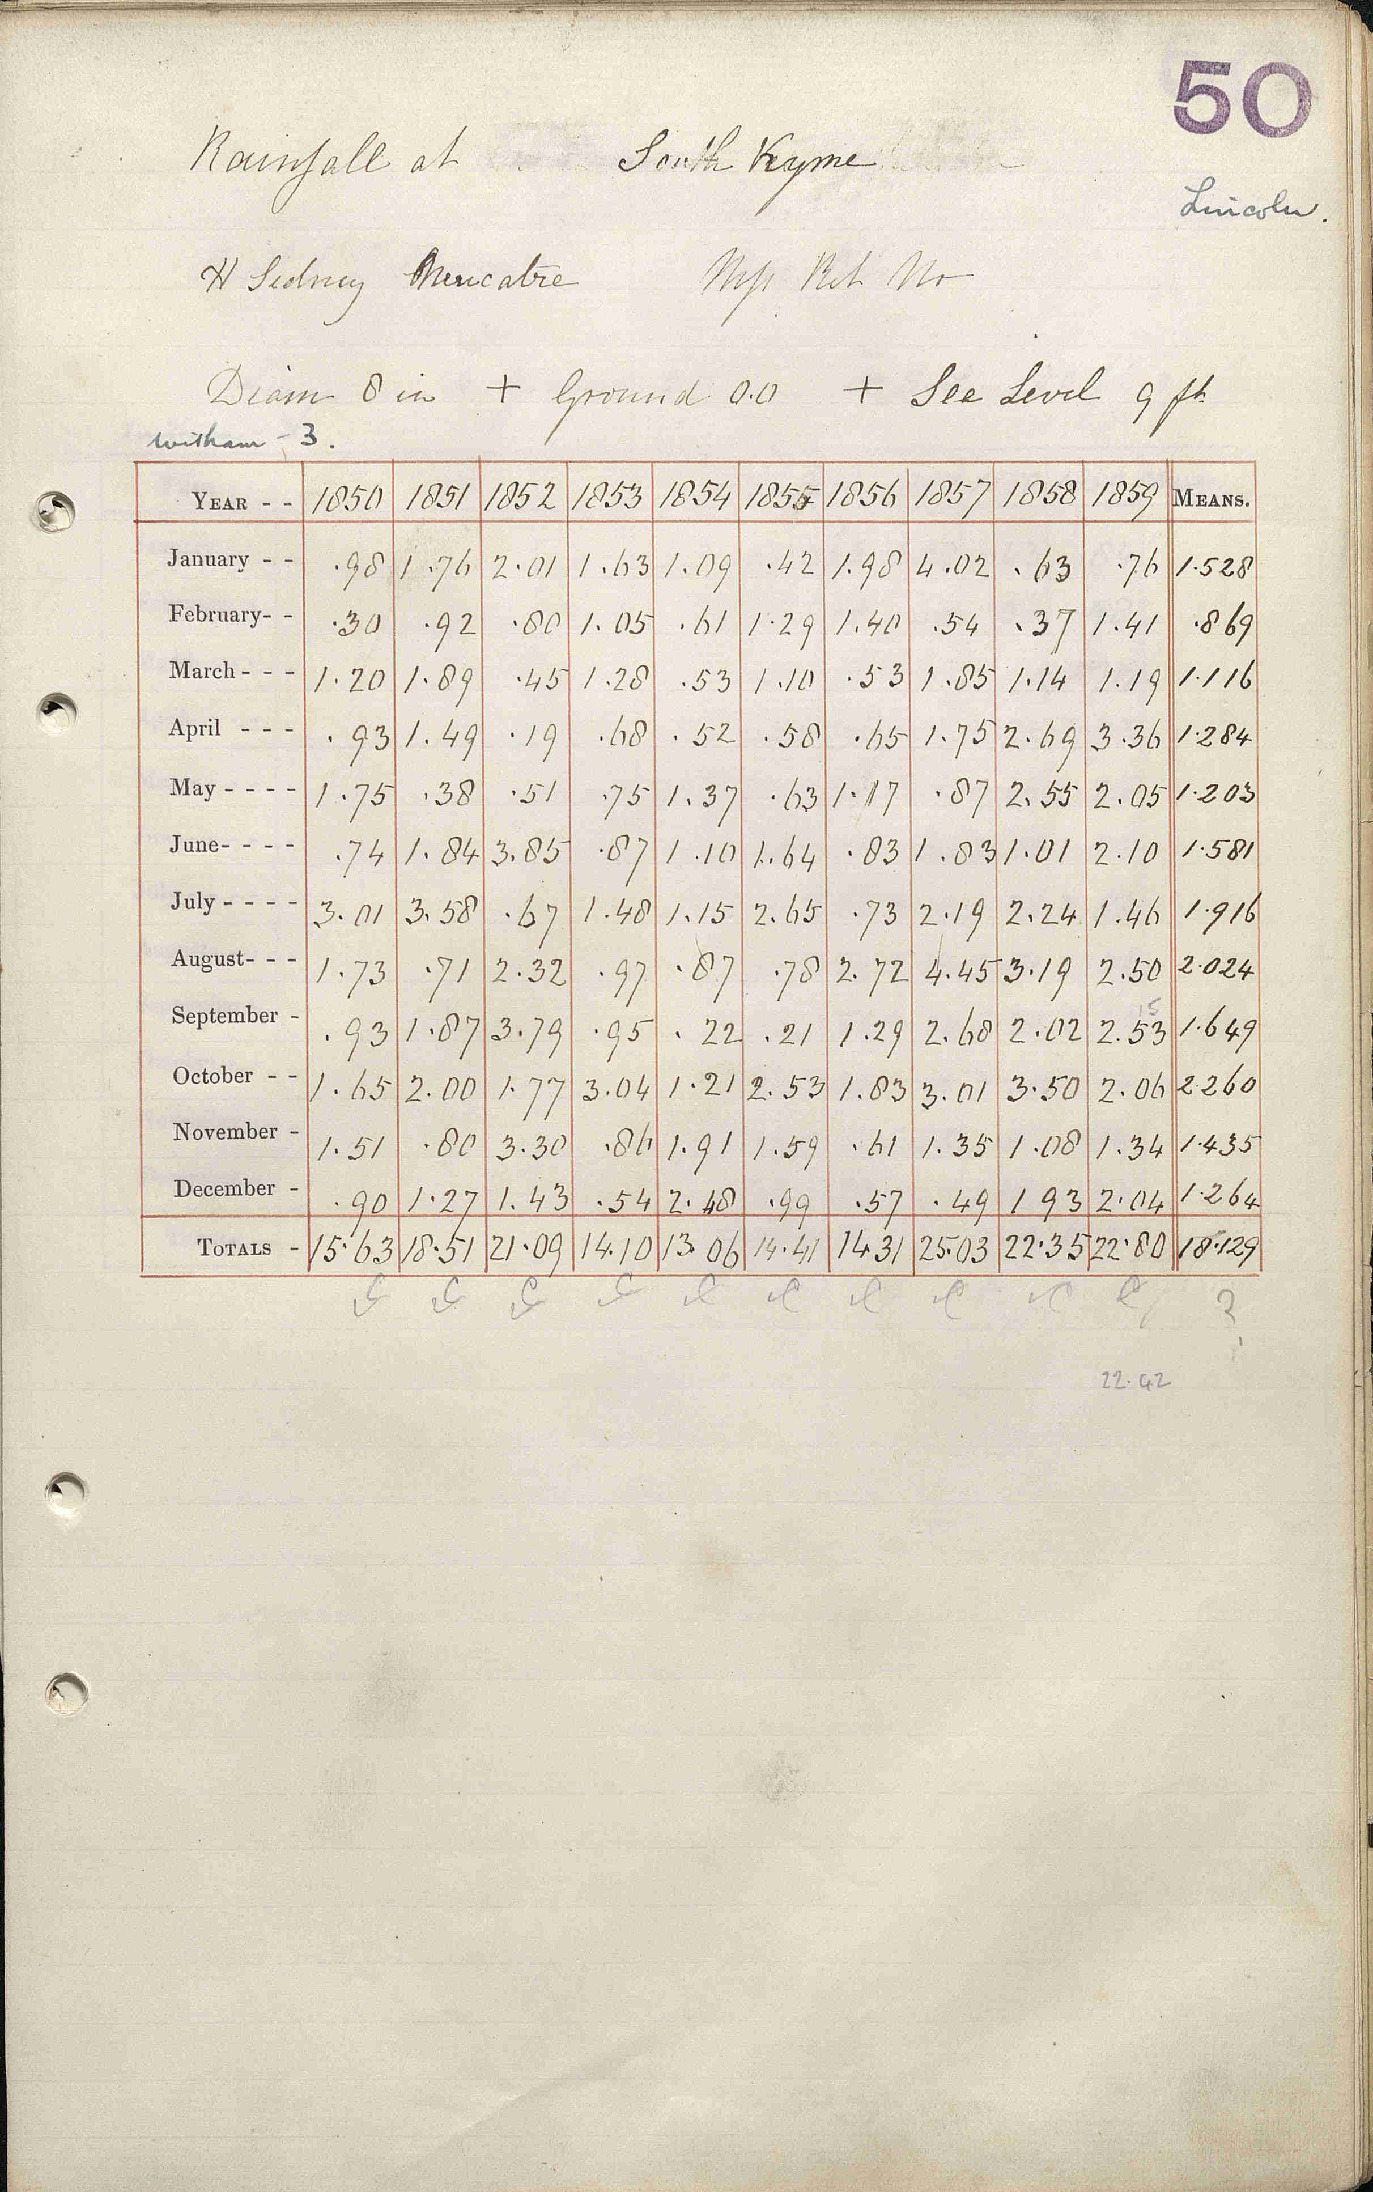 50
Rainfall at South Kyme
Lincoln.
H Sidney
Diam 8 in + Ground 0.0 + See Level 9 ft
Witham - 3.
YEAR - - 1850 1851 1852 1853 1854 1855 1856 1857 1858 1859 MEANS.
January - - .98 1.76 2.01 1.63 1.09 .42 1.98 4.02 .63 .76 1.528
February- - .30 .92 .80 1.05 .61 1.29 1.40 .54 .37 1.41 .869
March - - - 1.20 1.89 .45 1.28 .53 1.10 .53 1.85 1.14 1.19 1.116
April - - - .93 1.49 .19 .68 .52 .58 .65 1.75 2.69 3.36 1.284
May - - - - 1.75 .38 .51 .75 1.37 .63 1.17 .87 2.55 2.05 1.203
June- - - - .74 1.84 3.85 .87 1.10 1.64 .83 1.83 1.01 2.10 1.581
July - - - - 3.01 3.58 .67 1.48 1.15 2.65 .73 2.19 2.24 1.46 1.916
August- - - 1.73 .71 2.32 .97 .87 .78 2.72 4.45 3.19 2.50 2.024
15
September - .93 1.87 3.79 .95 .22 .21 1.29 2.68 2.02 2.53 1.649
October - - 1.65 2.00 1.77 3.04 1.21 2.53 1.83 3.01 3.50 2.06 2.260
November - 1.51 .80 3.30 .86 1.91 1.59 .61 1.35 1.08 1.34 1.435
December - .90 1.27 1.43 .54 2.48 .99 .57 .49 1 93 2.04 1.264
TOTALS - 15.63 18.51 21.09 14.10 13.06 14.41 14.31 25.03 22.35 22.80 18.129
?
22.42